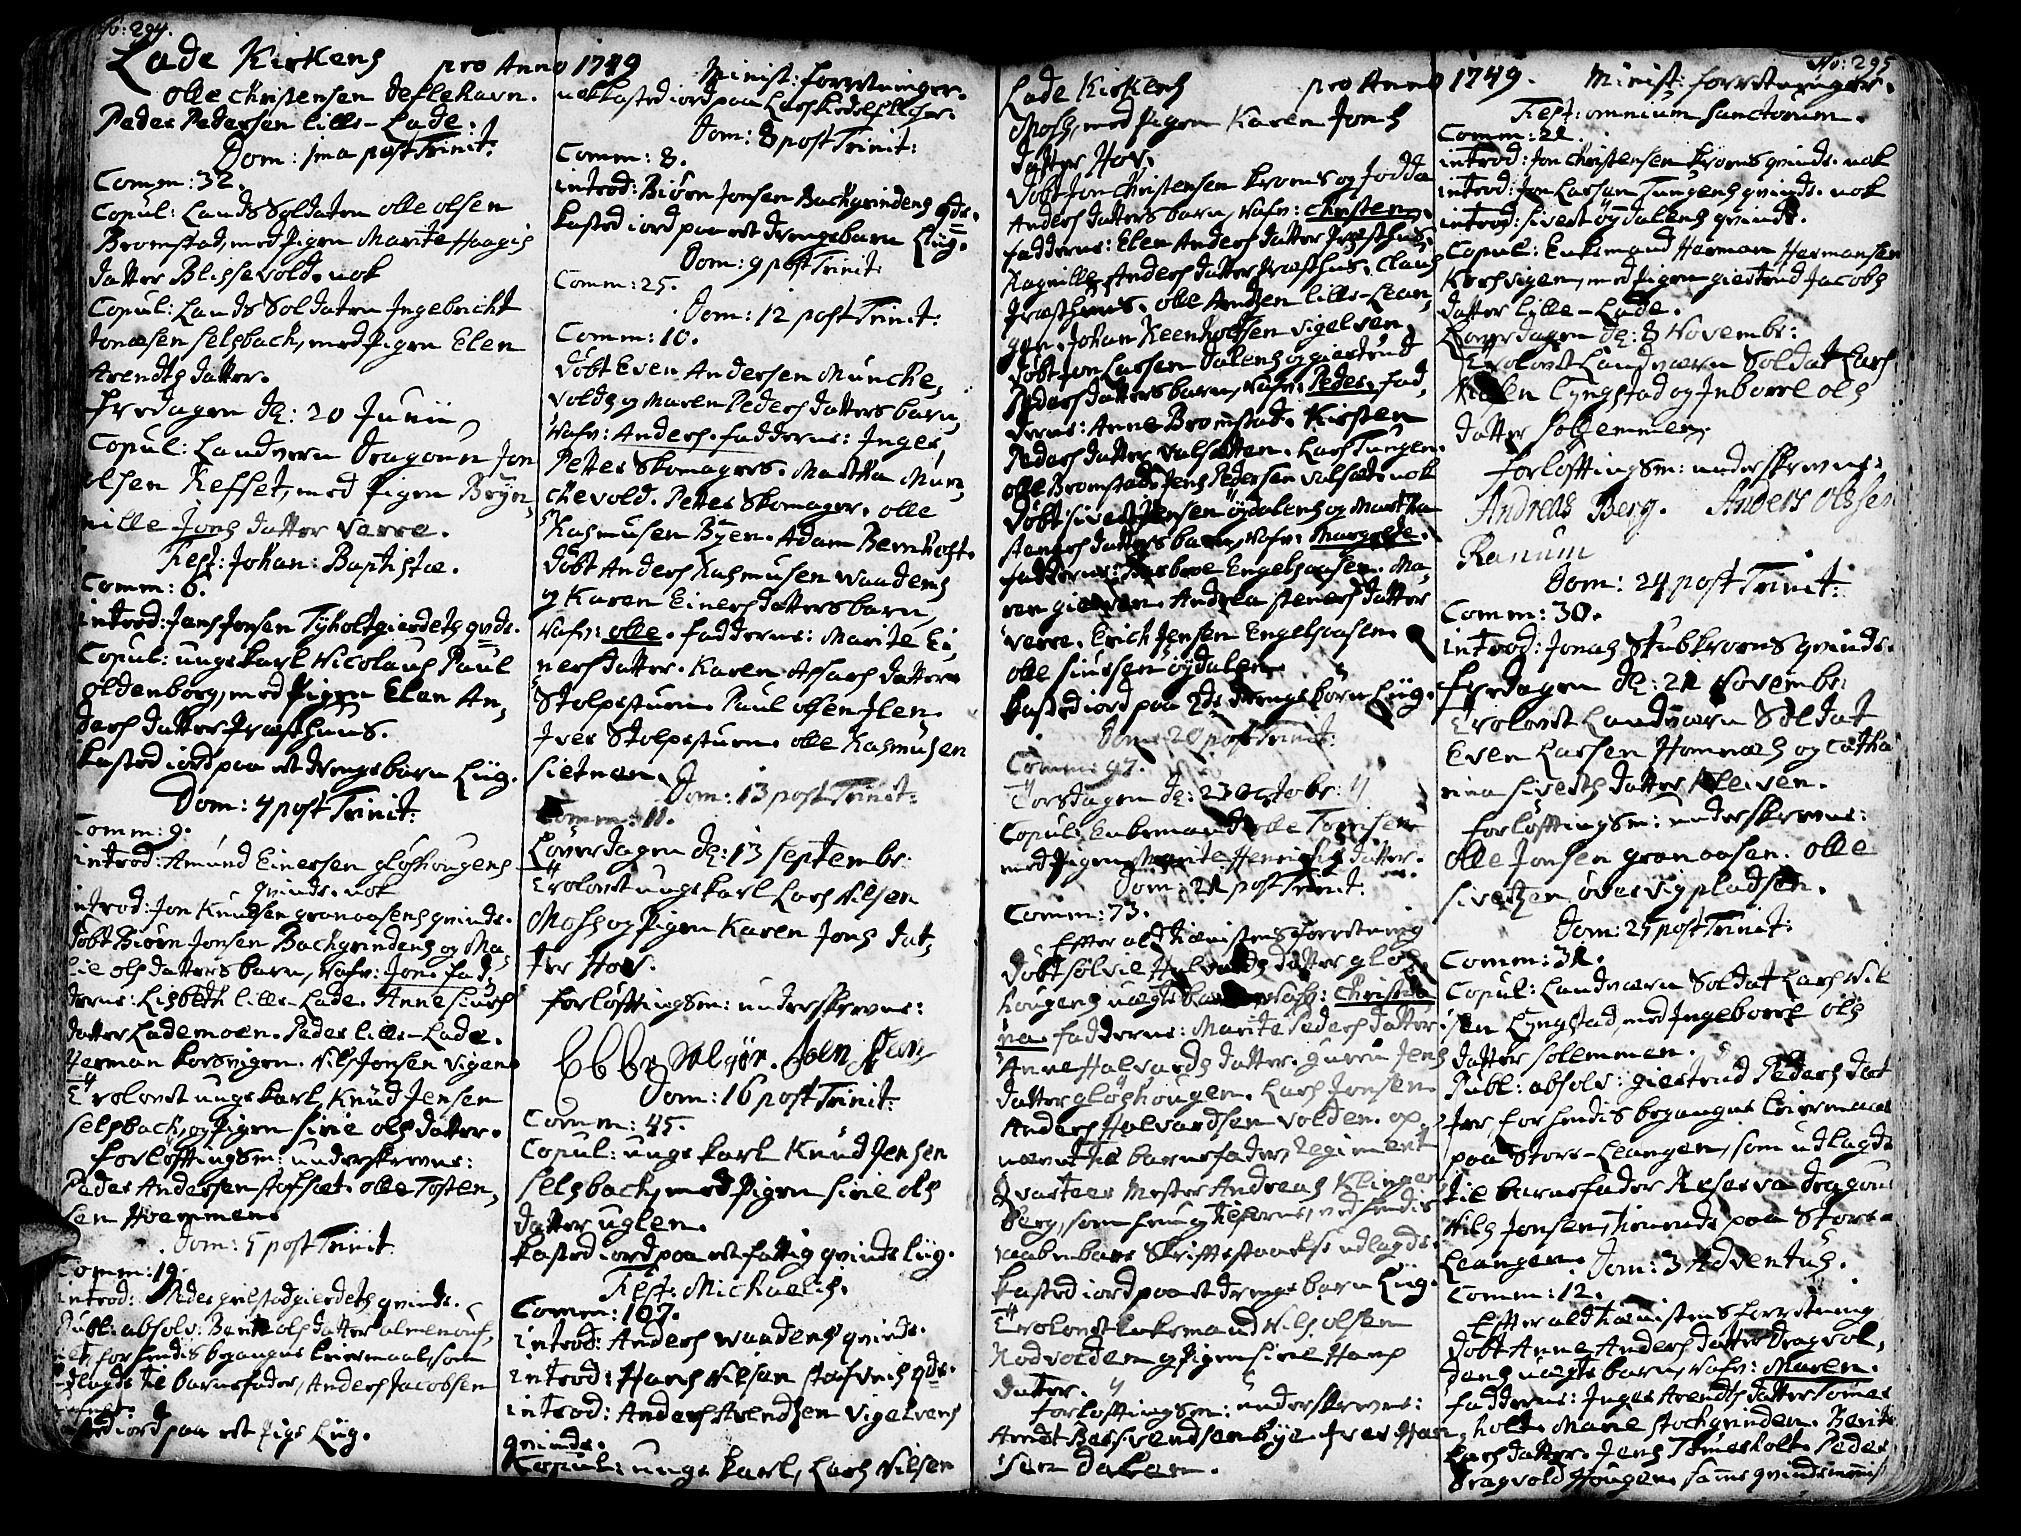 No: 294.
Lade Kirkens pro Anno 1749 Minist: forretninger.
Olle Christensen Deflehavn.
Peder Pedersen Lille-Lade.
Dom: 1ma post Trinit:
Comm: 32.
Copul: Lands Soldaten Olle Olsen
Bromstad, med Pigen Marite Haagis
datter Blissevold. nok
Copul: Lands Soldaten Ingebricht
Jonæsen Selsbach, med Pigen Elen
Arendts datter.
Fredagen d: 20 Junii
Copul: Landværn Dragoun Jon
Olsen Refset, med Pigen Bryn,
nille Jons datter Verre.
Fest: Johan: Baptistæ.
Comm: 6.
introd: Jens Jensen Tyholtgierdets qvde.
Copul: unge karl Nicolaus Paul
Oldenborg, med Pigen Elen An,
ders datter Præsthuus.
kasted iord paa et drengebarn Liig.
Dom: 4 post Trinit:
Comm: 9.
introd: Amund Einersen gløshougens
qvinde. nok
introd: Jon Knudsen granaasens qvinde.
døbt Biørn Jonsen Bachgrindens og Ma,
lie Ols datters barn, Nafn: Jon. fad,
derne: Lisbeth Lille-Lade. Anne Siurs
datter Lademoen. Peder Lille-Lade.
Herman Korsvigen. Nils Jonsen Vigen.
Trolovet unge karl, Knud Jensen
Selsbach, og Pigen Sirie Ols datter.
forløftingsm: underskrevne:
Peder Andersen Stofsæt. Olle Tosten,
sen Hvemmen.
Dom: 5 post Trinit:
Comm: 19.
introd: Peder grilstadgierdets qvinde.
Publ: absolv: Berit Ols datter
for hendis begangne Leiermaal, som
udlagde til barnefader, Anders Jacobsen
kasted iord paa et Pige Liig.
nok kasted iord paa Lars
Dom: 8 post Trinit:
Comm: 8.
introd: Biørn Jonsen Bachgrindens qde.
kasted iord paa et drengebarn Liig.
Dom: 9 post Trinit:
Comm: 25.
Dom: 12 post Trinit:
Comm: 10.
døbt Even Andersen Munche,
volds og Maren Peders datters barn,
Nafn: Anders. fadderne: Inger
Petter Skomagers. Martha Mun,
chevold. Petter Skomager. Olle
Rasmusen Byen. Adam Bernhoft.
døbt Anders Rasmusen Waadens
og Karen Einers datters barn,
Nafn: Olle. fadderne: Marite Ei,
ners datter. Karen Assars datter
Stolpestuen. Paul Olsen Ilen.
Iver Stolpestuen. Olle Rasmusen
Sietnæm.
Dom: 13 post Trinit:
Comm: 11.
Løverdagen d: 13 Septembr:
Trolovet unge karl Lars Nilsen
Mosh, og Pigen Karen Jons dat,
ter Hov.
forløftingsm: underskrevne:
Dom: 16 post Trinit:
Comm: 45.
Copul: unge karl Knud Jensen
Selsbach, med Pigen Sirie Ols
datter uglen.
kasted iord paa et fattig qvinde Liig.
Fest: Michaelis.
Comm: 107.
introd: Anders Waadens qvinde.
introd: Hans Nilsen qde.
introd: Anders Arendtsen Vigelvens
qvinde.
Copul: unge karl, Lars Nilsen
No: 295
Lade Kirkens pro Anno 1749. Minist: forretninger.
Mosh, med Pigen Karen Jons
datter Hov.
døbt Jon Christensen Kroens og Jodda
Anders datters barn, Nafn: Christen.
fadderne: Elen Anders datter Præsthuus.
Ragnille Anders datter Præsthuus. Claus
Præsthuus. Olle Arntzen Lille-Lean,
gen. Johan Reenholtsen Vigelven.
døbt Jon Larsen Dalens og giertrud
Peders datters barn, Nafn: Peder. fad,
derne: Anne Bromstad. Kirsten
Peders datter Valsetten. Lars Tungen.
Olle Bromstad. Jens Pedersen Valsæt. nok
døbt Sivert Jensen øydalens og Martha
Steners datters barn, Nafn: Margrete.
fadderne: Engelsaasen. Ma,
ren . Andrea Steners datter
Verre. Erich Jensen Engelsaasen.
Olle Siursen øydalen.
kasted iord paa 2de drengebørn Liig.
Dom: 20 post Trinit:
Comm: 47.
Torsdagen d: 23 Octobr:
Copul: Enkemand Olle Tomsen
med Pigen Marite Henrichs datter.
Dom: 21 post Trinit:
Comm: 73.
Efter ald tienistens forretning
døbt Sølvie Halvards datter gløs,
hougens uægte barn, Nafn: Christia
na. fadderne: Marite Peders datter.
Anne Halvards datter. guren Jens
datter gløshougen. Lars Jonsen.
Anders Halvardsen Volden. op,
nævnt til barnefader, Regiment
qvarteer Mester Andreas Klingen,
berg, som hun og tilforne, ved hendis
aabenbare Skriftestaaelse udlagde.
kasted iord paa et drengebarn Liig.
Trolovet Enkemand Nils Olsen
Nodvolden og Pigen Sirie Hans
datter.
forløftingsm: underskrevne:
Arndt Bersvendsen bye. Iver Han,
sen Dalen.
Fest: omnium Sanctorum.
Comm: 21.
introd: Jon Christensen Kroens qvinde. nok
introd: Jon Larsen Tungens qvinde. nok
introd: Sivert øydalens qvinde.
Copul: Enkemand Herman Hermansen
Korsvigen, med Pigen giertrud Jacobs
datter Lille-Lade.
Løverdagen d: 8 Novembr:
Trolovet Landværn Soldat Lars
Nilsen Lyngstad og Inborre Ols
datter Solemmen.
forløftingsm: underskrevne:
Andreas Berg. Anders Olssen
Ranum
Dom: 24 post Trinit:
Comm: 30.
introd: Jonas Stubkroens qvinde.
fredagen d: 21 Novembr:
Trolovet Landværn Soldat
Even Larsen Hommæs og Catha
rina Siverts datter Kleiven.
forløftingsm: underskrevne:
Olle Jonsen granaasen. Olle
Sivertzen øvervigpladsen.
Dom: 25 post Trinit:
Comm: 31.
Copul: Landværn Soldat Lars Nil
sen Lyngstad, med Ingeborre Ols
datter Solemmen.
Publ: absolv: giertrud Peders dat
ter for hendis begangne Leiermaal
paa Store-Leangen, som udlagde
til barnefader Reserva dragoun
Nils Jonsen, tienende paa Store-
Leangen. Dom: 3 Adventus.
Comm: 12.
Effter ald tienistens forretning
døbt Anne Anders datter Dragvol,
dens uægte barn, Nafn: Maren.
fadderne: Inger Arendts datter Tømes
holt. Marie Stochgrinden. Berite
Lars datter. Jens Tømesholt. Peder
Dragvold Hougen. samme qvindemenis